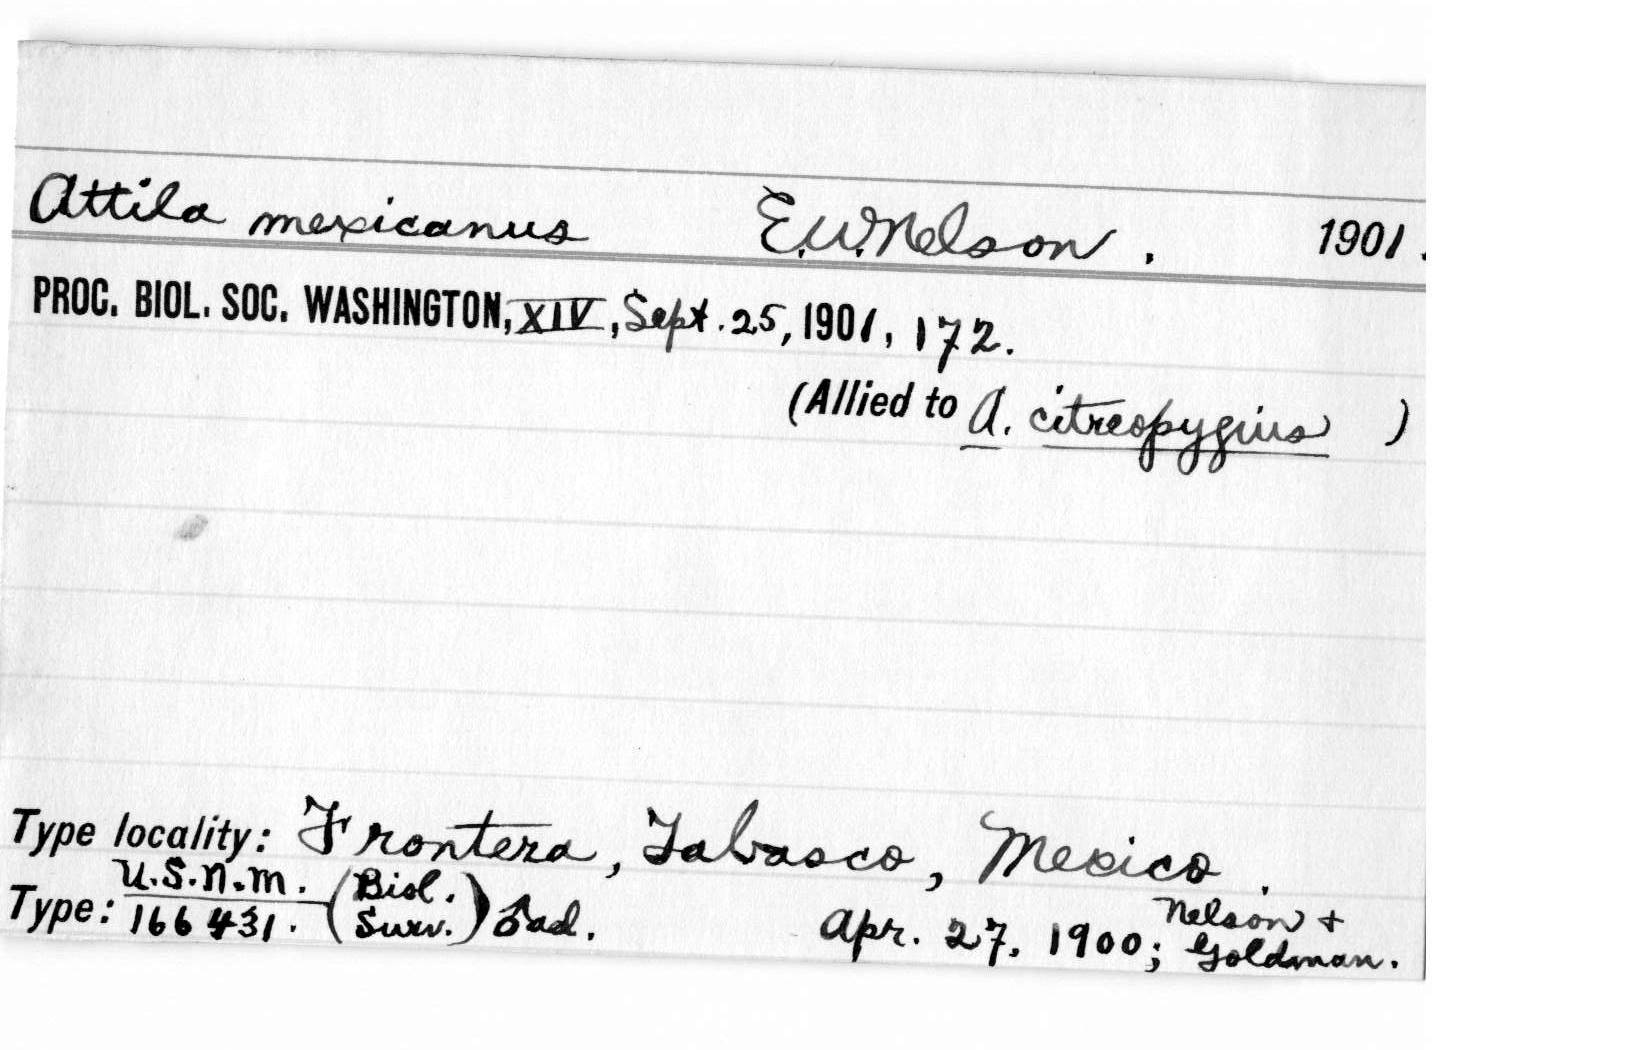 Attila mexicanus E.W.Nelson. 1901.
PROC. BIOL. SOC. WASHINGTON, XIV, Sept. 25, 1901, 172.
(Allied to A. citreopygius )
Type locality: Frontera, Tabasco, Mexico.
Type: U.S.N.M. 166431. (Biol. Surv.) ♂ad. Apr. 27, 1900; Nelson + Goldman.